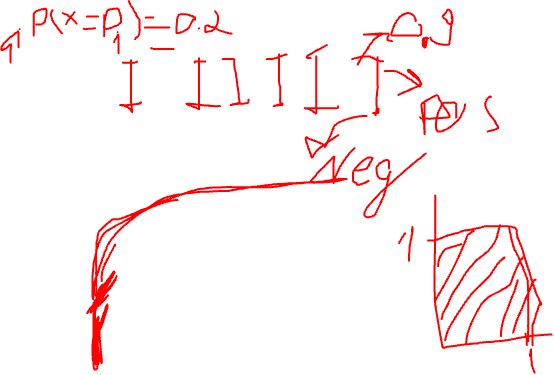 P(x=D1)=0.2
0.9
Pos
Neg
1
1